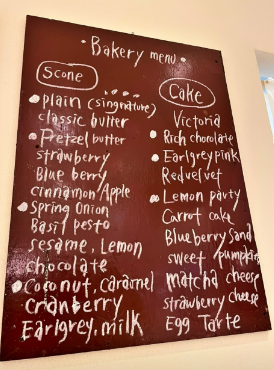 Bakery menu
Scone
plain (singnature)
classic butter
Pretzel butter
strawberry
Blue berry
cinnamon/Apple
Spring Onion
Basil pesto
sesame, Lemon
chocolate
Coconut, caramel
cranberry
Earlgrey, milk
Cake
Victoria
Rich chocolate
Earlgreypink
Redvelvet
Lemon party
Carrot cake
Blueberry Sand
sweet pumpkin
matcha cheese
strawberry cheese
Egg Tarte